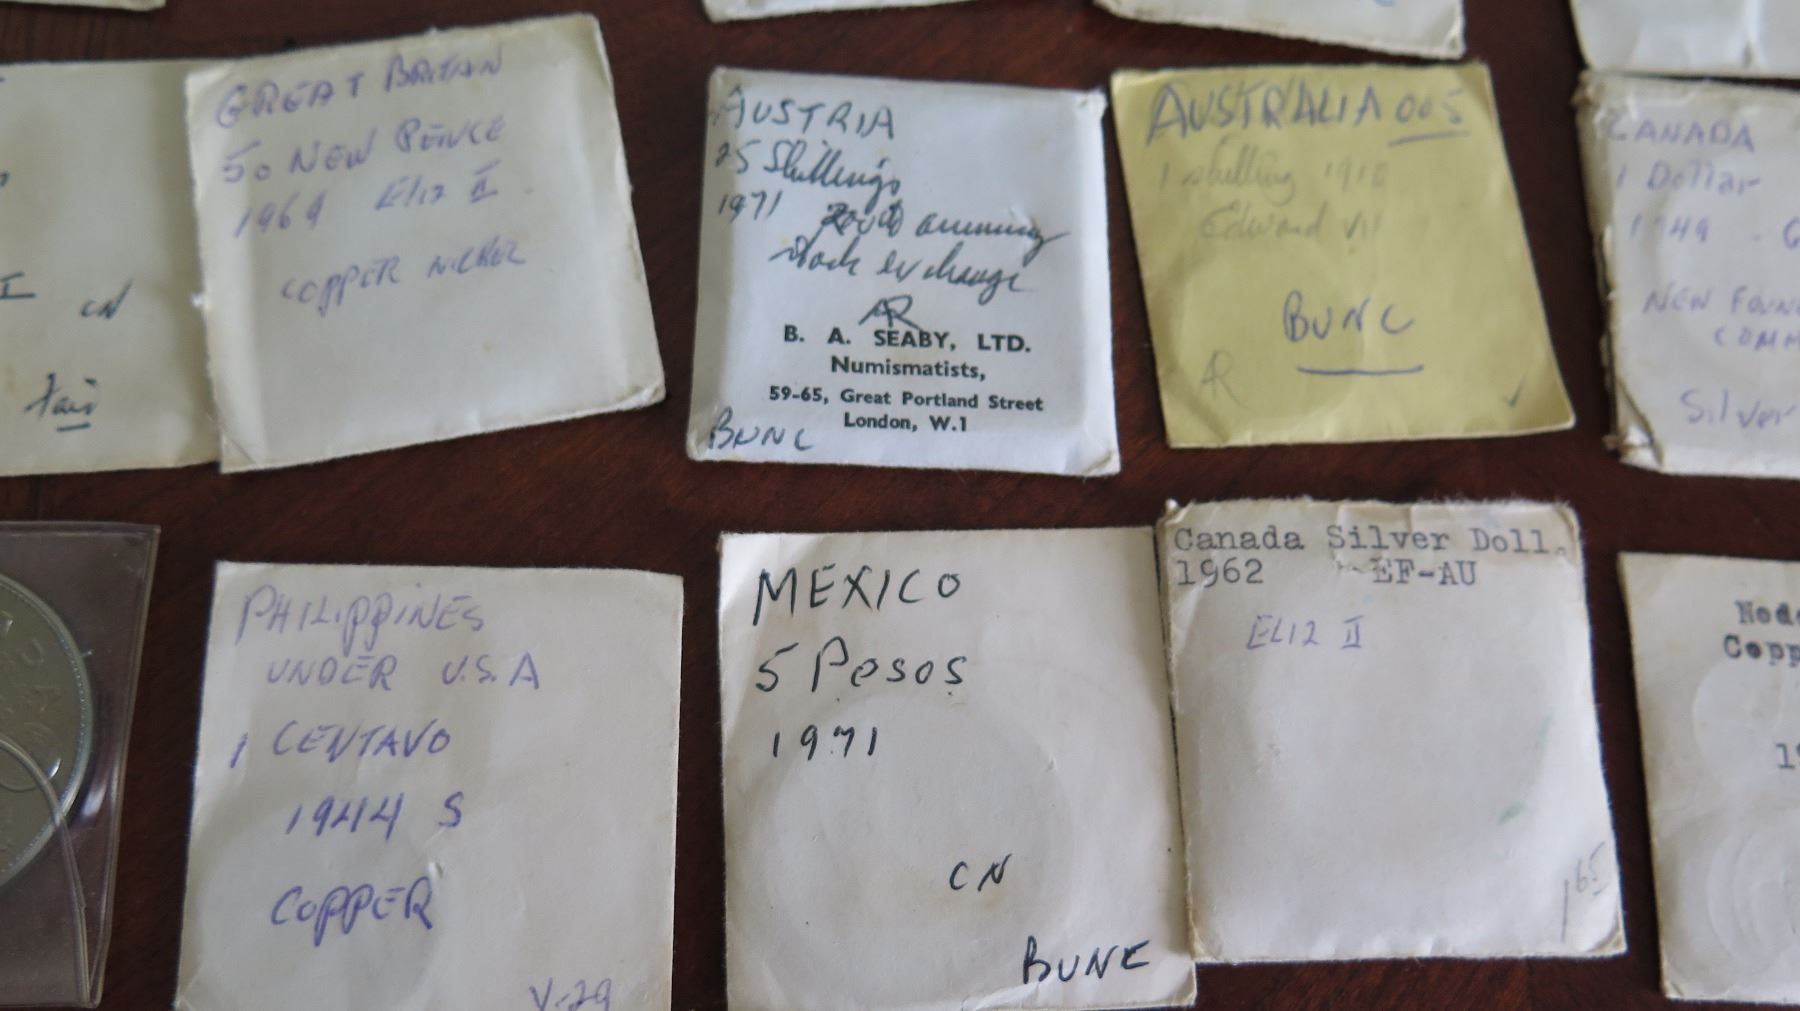 GREAT BRITAIN
50 NEW PENCE
1969 Eliz II
COPPER NICKEL
II CN
fair
AUSTRIA
25 Shillings
1971
200th anniversary
stock exchange
AR
B. A. SEABY, LTD.
Numismatists,
59-65, Great Portland Street
London, W.1
BUNC
AUSTRALIA 005
1 shilling 1910
Edward VII
BUNC
AR
CANADA
1 Dollar
1949
NEW FOUN
COMM
Silver
PHILIPPINES
UNDER U.S.A
1 CENTAVO
1944 S
COPPER
Y-29
MEXICO
5 Pesos
1971
CN
BUNC
Canada Silver Doll.
1962 EF-AU
ELIZ II
1 65
Copp